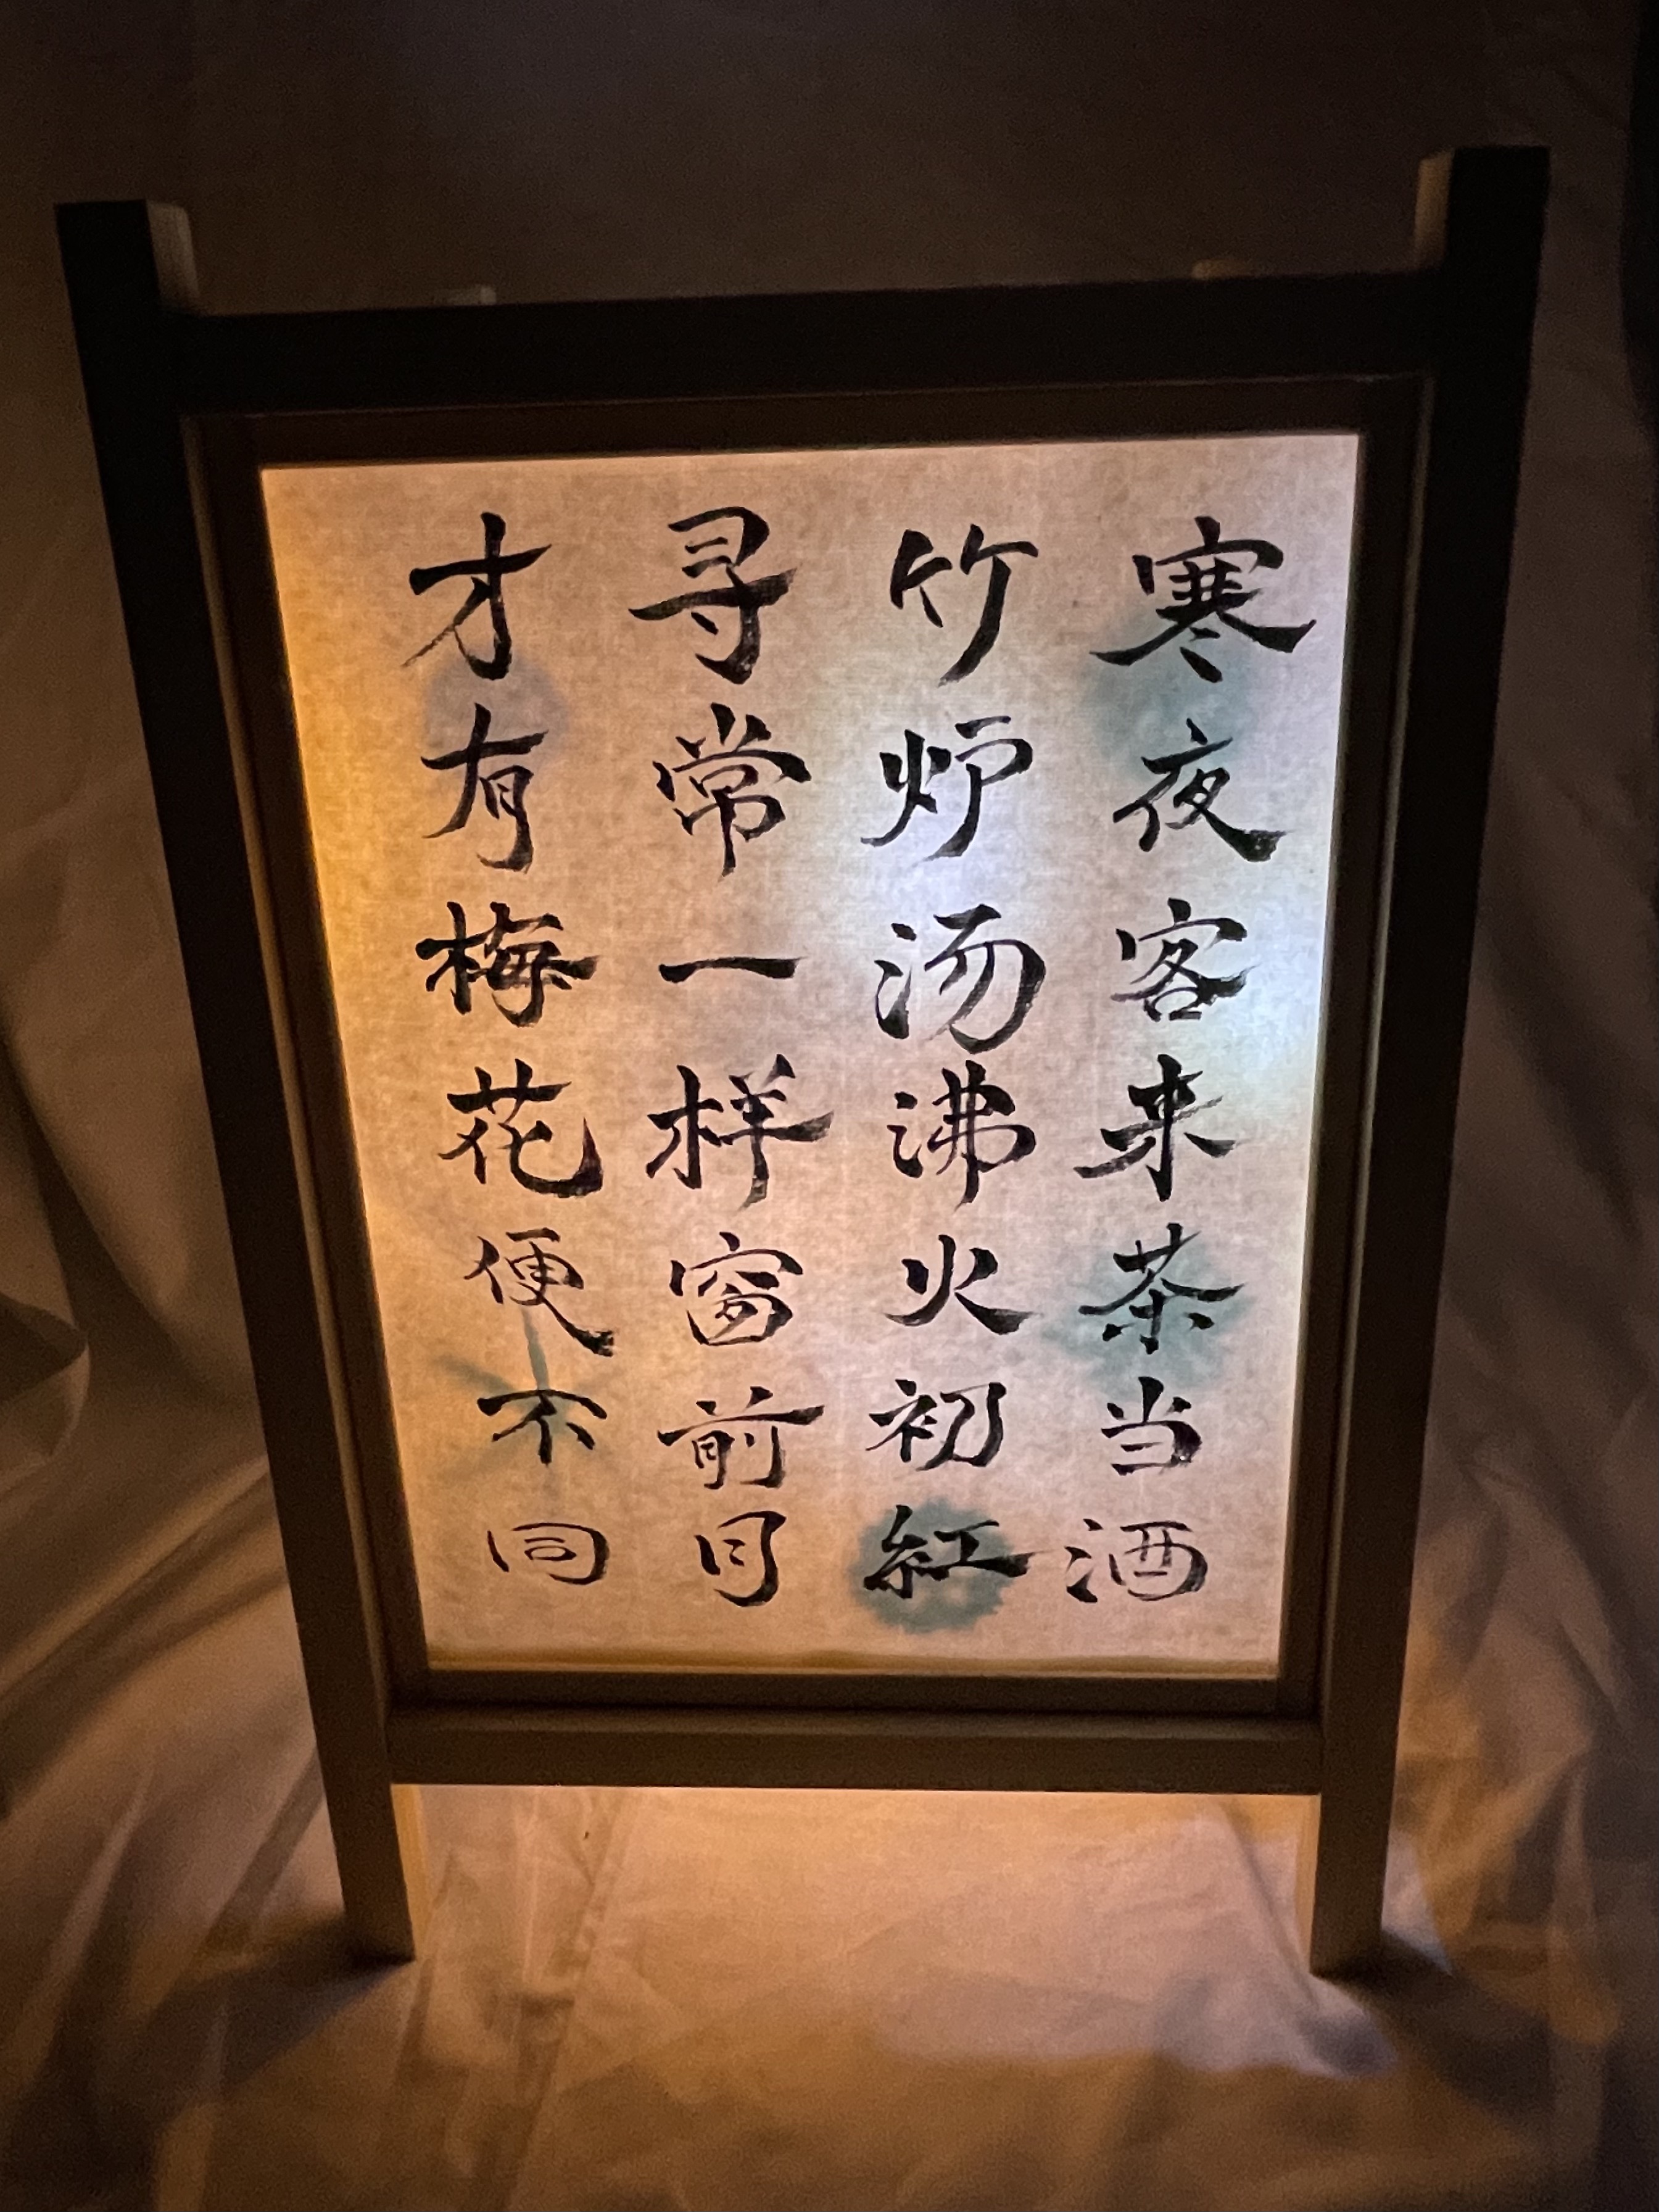 寒夜客来茶当酒
竹炉汤沸火初紅
寻常一样窗前月
才有梅花便不同